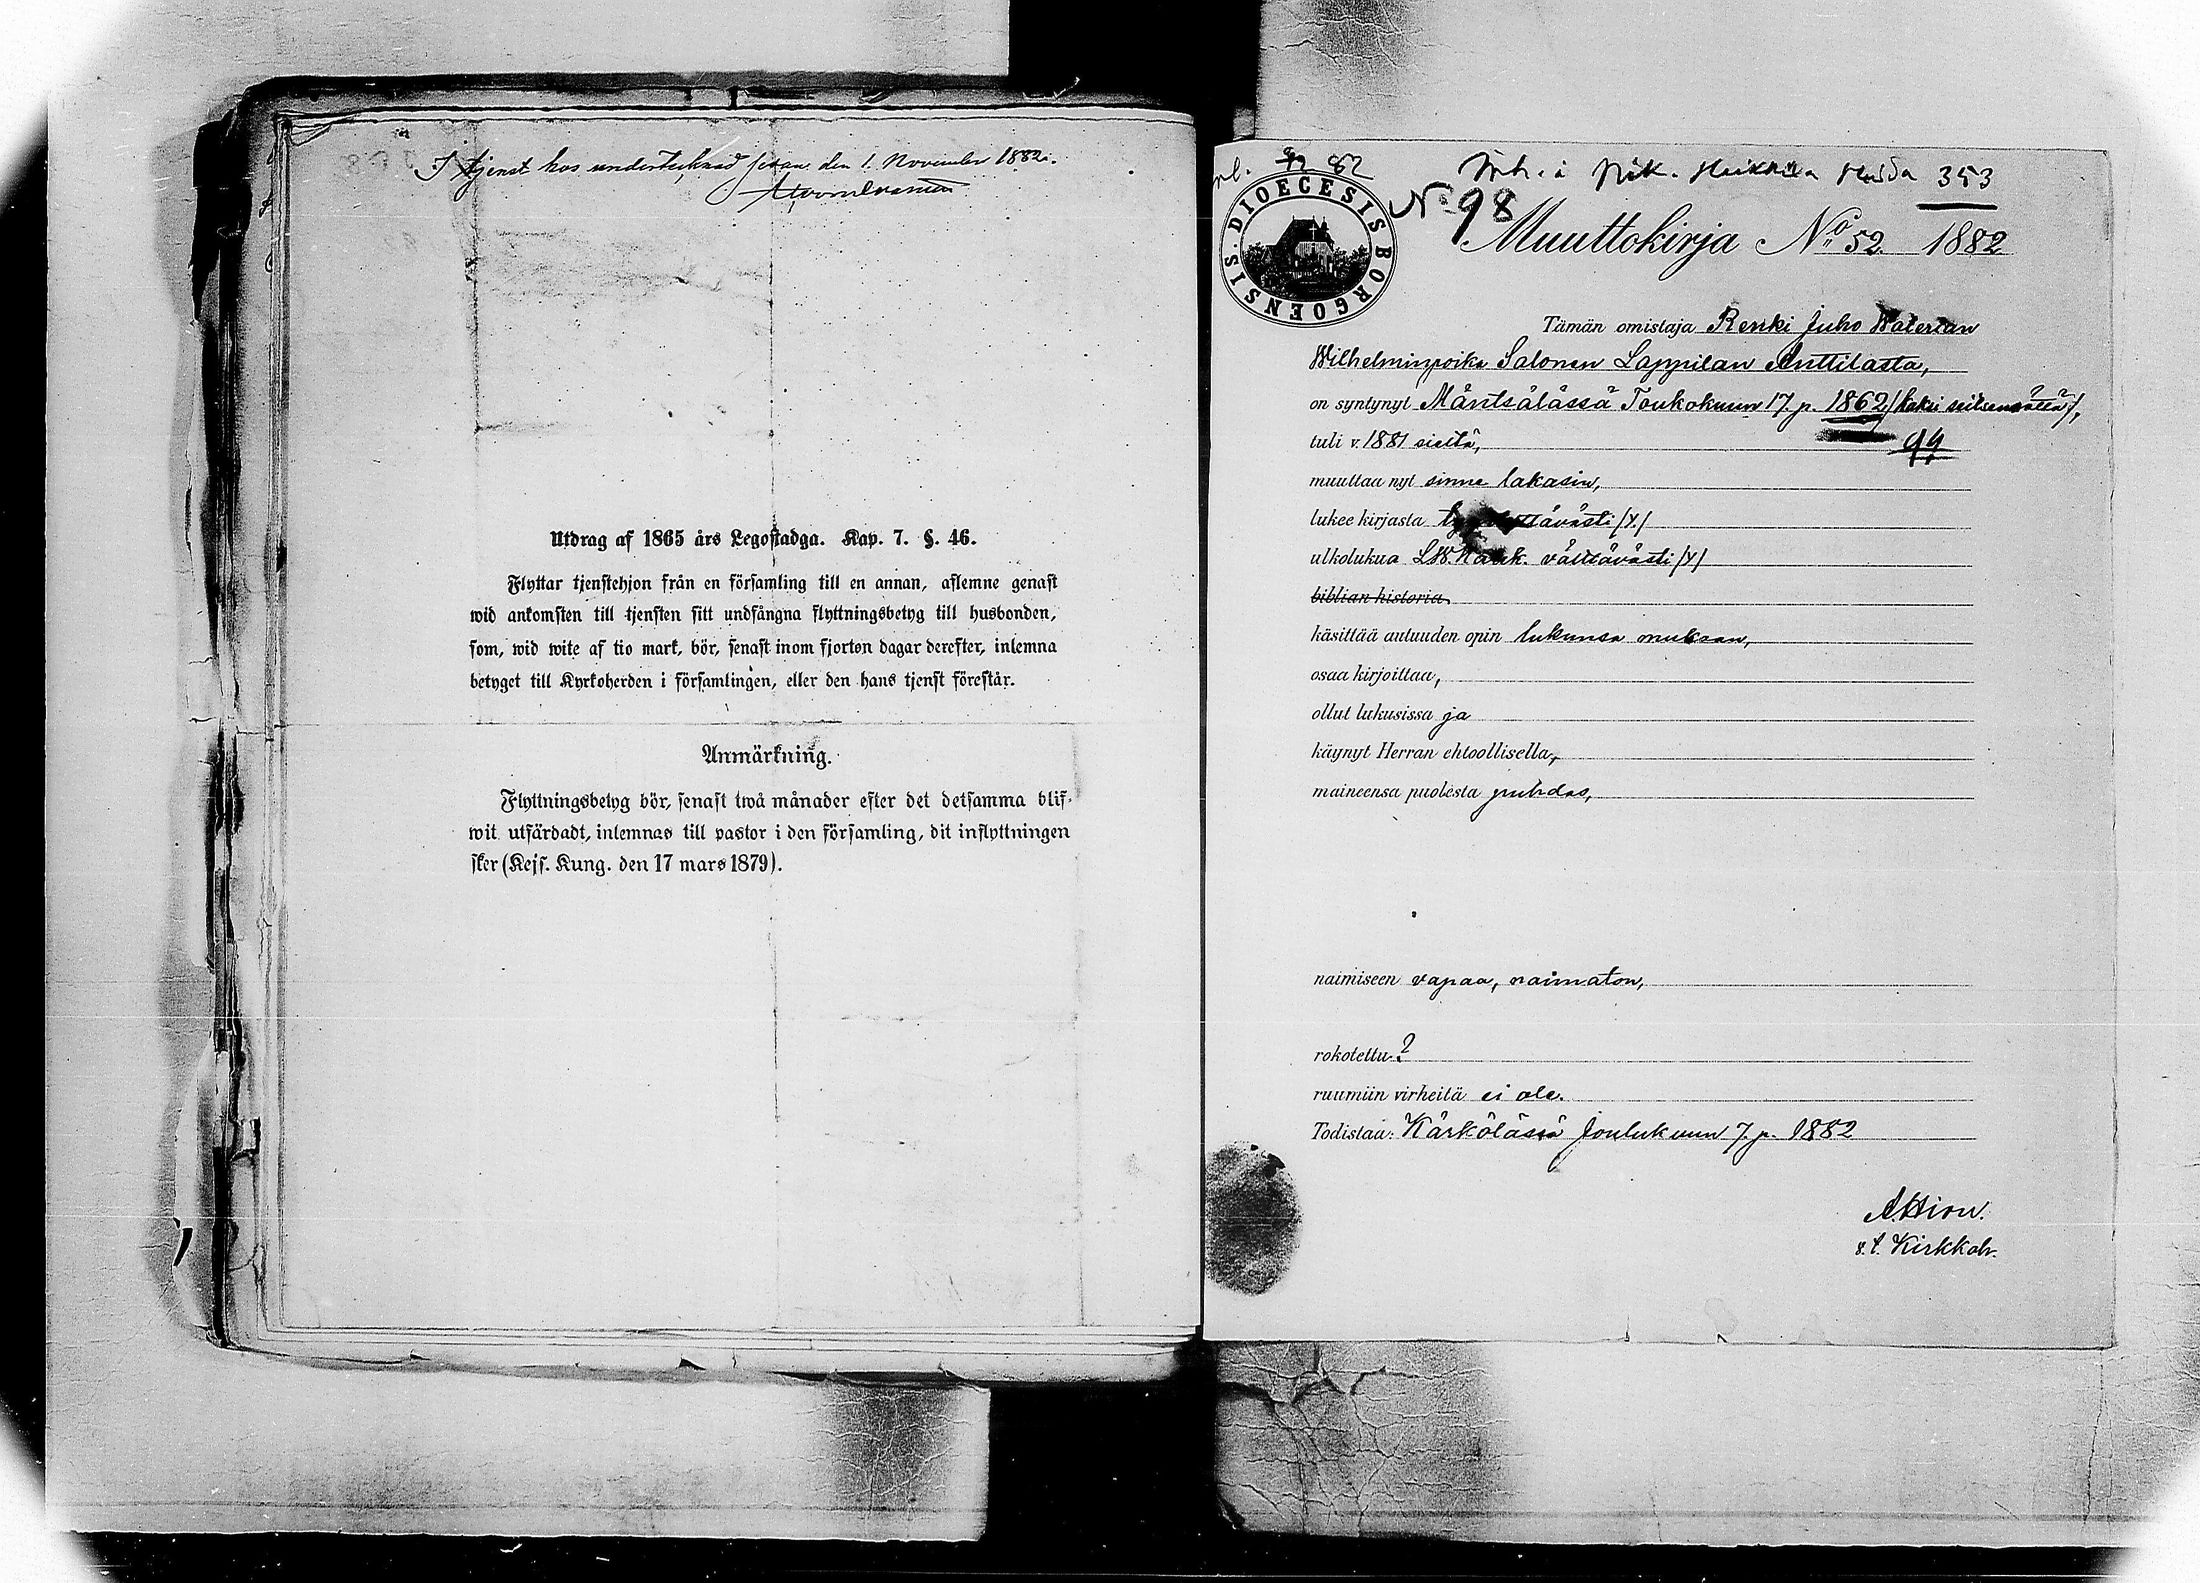 I tjenst hos undertecknad sedan den 1. November 1882.
Utdrag af 1865 års Legostadga. Kap. 7. §. 46.
Flyttar tjenstehjon från en församling till en annan, aflemne genast
wid ankomsten till tjensten sitt undfångna flyttningsbetyg till husbonden,
som, wid wite af tio mark, bör, senast inom fjorton dagar derefter, inlemna
betyget till Kyrkoherden i församlingen, eller den hans tjenst förestår.
Anmärkning.
Flyttningsbetyg bör, senast twå månader efter det detsamma blif-
wit utfärdadt, inlemnas till pastor i den församling, dit inflyttningen
sker (Kejs. Kung. den 17 mars 1879).
82 353
DIOECESIS BORGOENSIS
No 98
Muuttokirja No 52. 1882
Tämän omistaja Renki Juho Walerian
Wilhelminpoika Salonen Lappilan Anttilasta,
on syntynyt Mäntsälässä Toukokuun 17. p. 1862
tuli v. 1881 sieltä, 94
muuttaa nyt sinne takasin,
lukee kirjasta
ulkolukua välttävästi
biblian historia
käsittää autuuden opin lukunsa mukaan,
osaa kirjoittaa,
ollut lukusissa ja
käynyt Herran ehtoollisella,
maineensa puolesta puhdas,
naimiseen vapaa, naimaton,
rokotettu ?
ruumiin virheitä ei ole.
Todistaa: Kärkölässä Joulukuun 7. p. 1882
A. Hirn.
v. t. Kirkkoh.